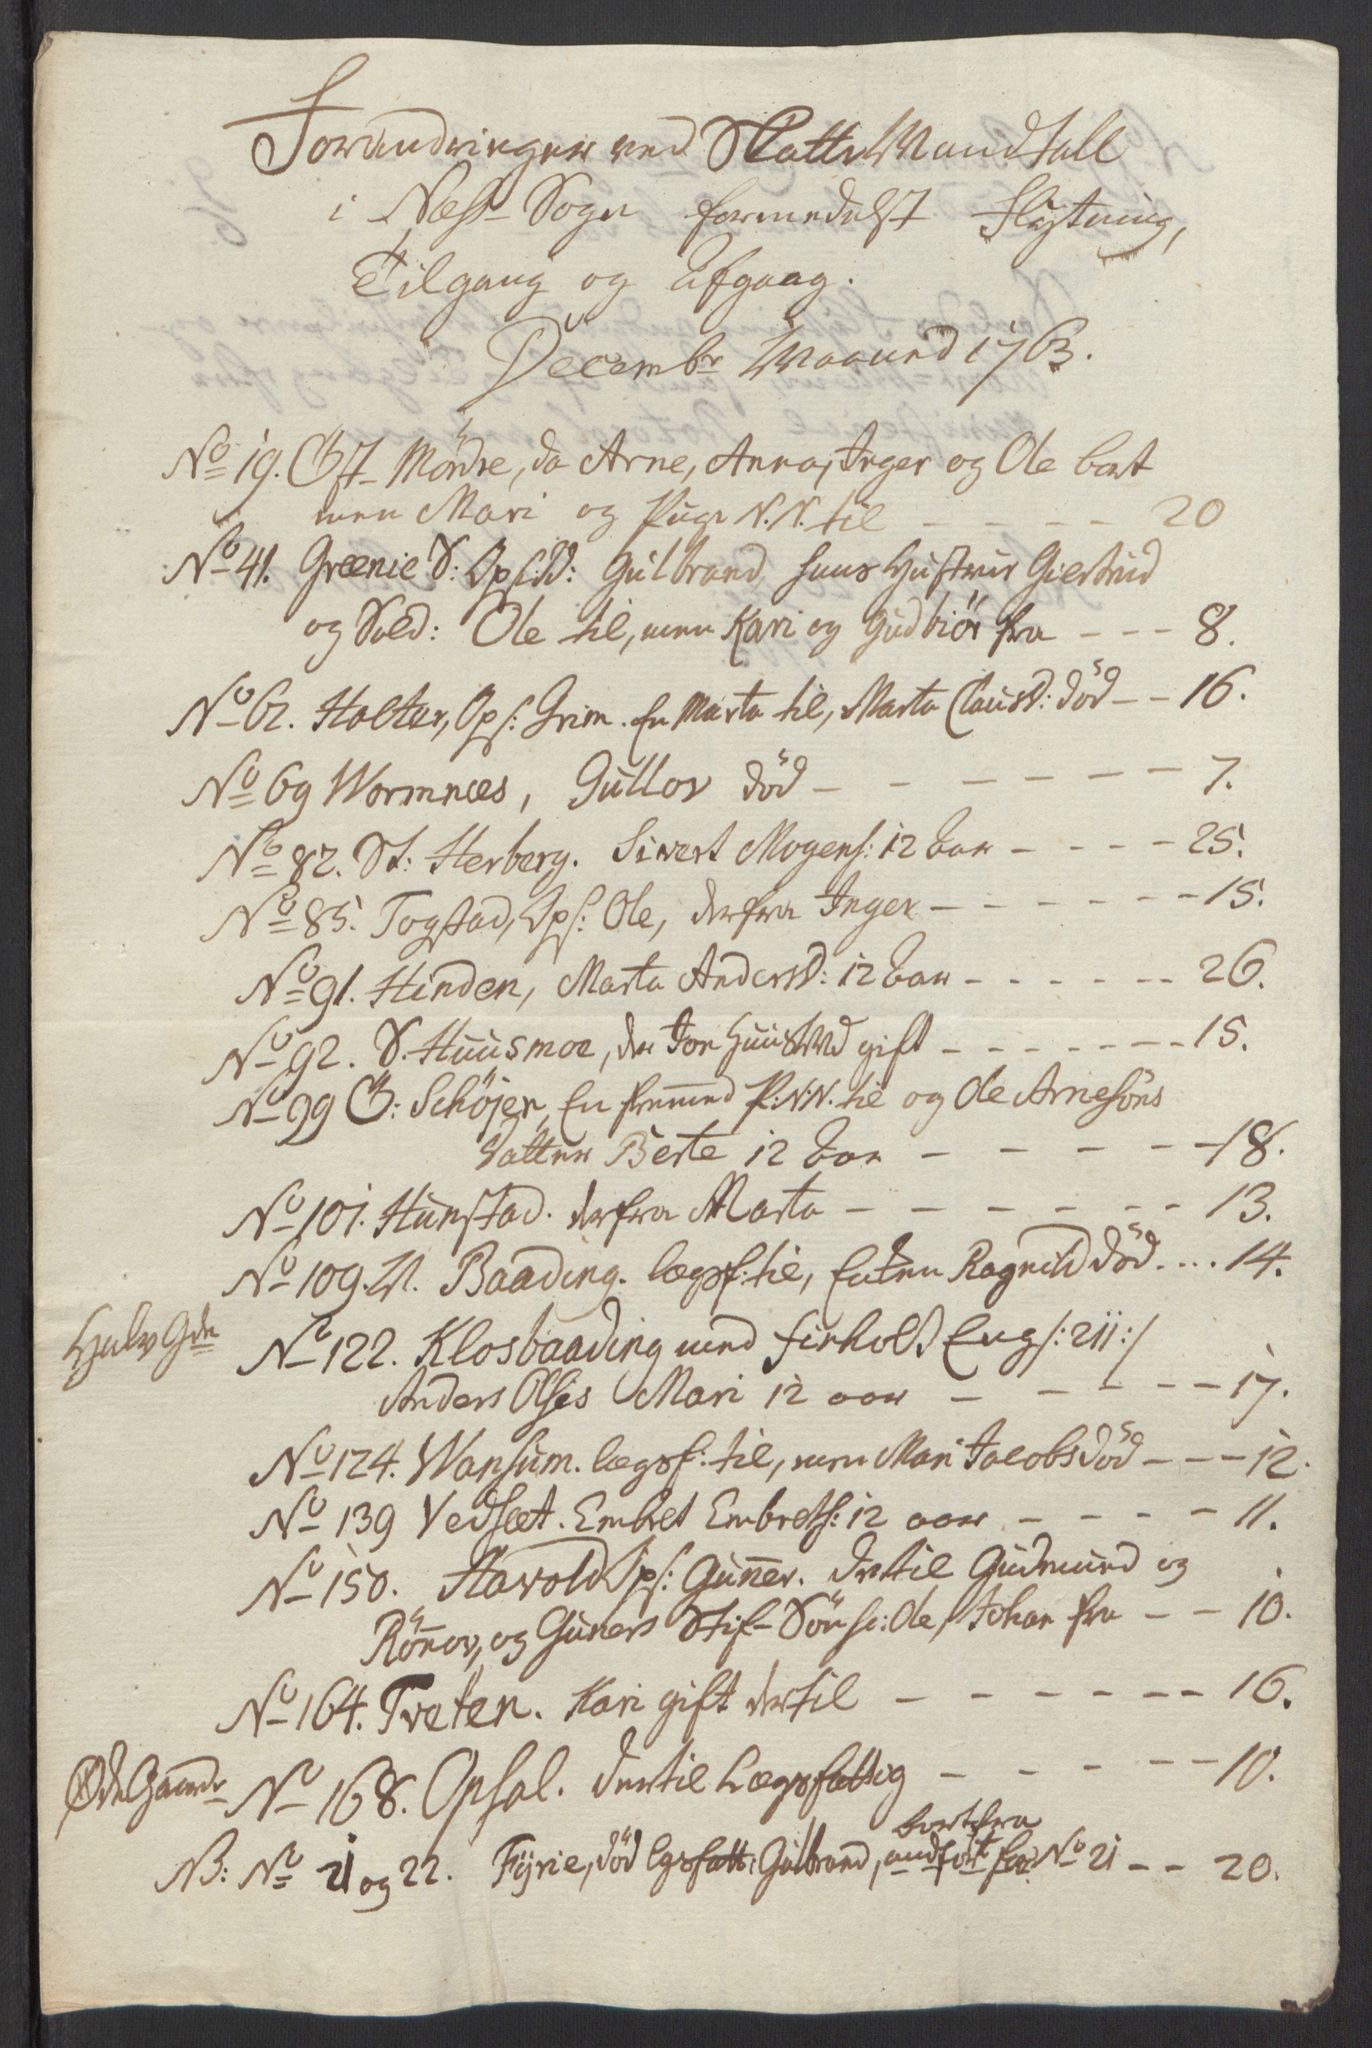 Forandringer ved SkatteMandtall
i Næss-Sogn formedelst Flytning,
Tilgang og Afgang.
Decembr Maaned 1763.
No 19. Øst-Mördre, da Arne, Anna, Inger og Ole bort
men Mari og Pige N.N. til - - - - 20
No 41. Grænie S: Ops: Gülbrand hans Hustrue Giertrud
og Sold: Ole til, men Kari og Gudbiör fra - - - 8.
No 62. Holter, Ops: Grim. En Marta til, Marta Clausd: död - - 16.
No 69 Wormnæs, Güllov död - - - - - - 7.
No 82. St: Herberg. Siwert Mogens: 12 aar - - - - 25.
No 85. Togstad, Ops: Ole, derfra Inger - - - - - - 15.
No 91. Hinden, Marta Andersd: 12 aar - - - - - - 26.
No 92. S. Huusmoe, der Jon gift - - - - - - - 15.
No 99 Ø: Schöjen, En fremmed P: N.N. til og Ole Arnesöns
Datter Berte 12 aar - - - - - - 18.
No 101. Hünstad. derfra Marta - - - - - - - 13.
No 109. N. Baading. lægsf: til, Enken Ragnild död .... 14.
Halv Gde No 122. Klosbaading med Eng /: 211 :/
Anders Olses Mari 12 aar - - - - - 17.
No 124. Wansum. lægsf: til, men Mari Jacobsd död - - - 12.
No 139 Vedsæt. Embret Embrets: 12 aar - - - - - 11.
No 150. Harold Ops: Guñer. Dertil Gudmund og
Röñov, og Guners Stif-Sön sc: Ole, Johan fra - - 10.
No 164. Tveten. Kari gift dertil - - - - - - - 16.
Øde Gaarde No 168. Opsal. Dertil Lægsfattig - - - - - - 10.
bortfra
NB: No 21 og 22. Fÿrie, död lgsfatt: Gülbrand, No 21 - - 20.